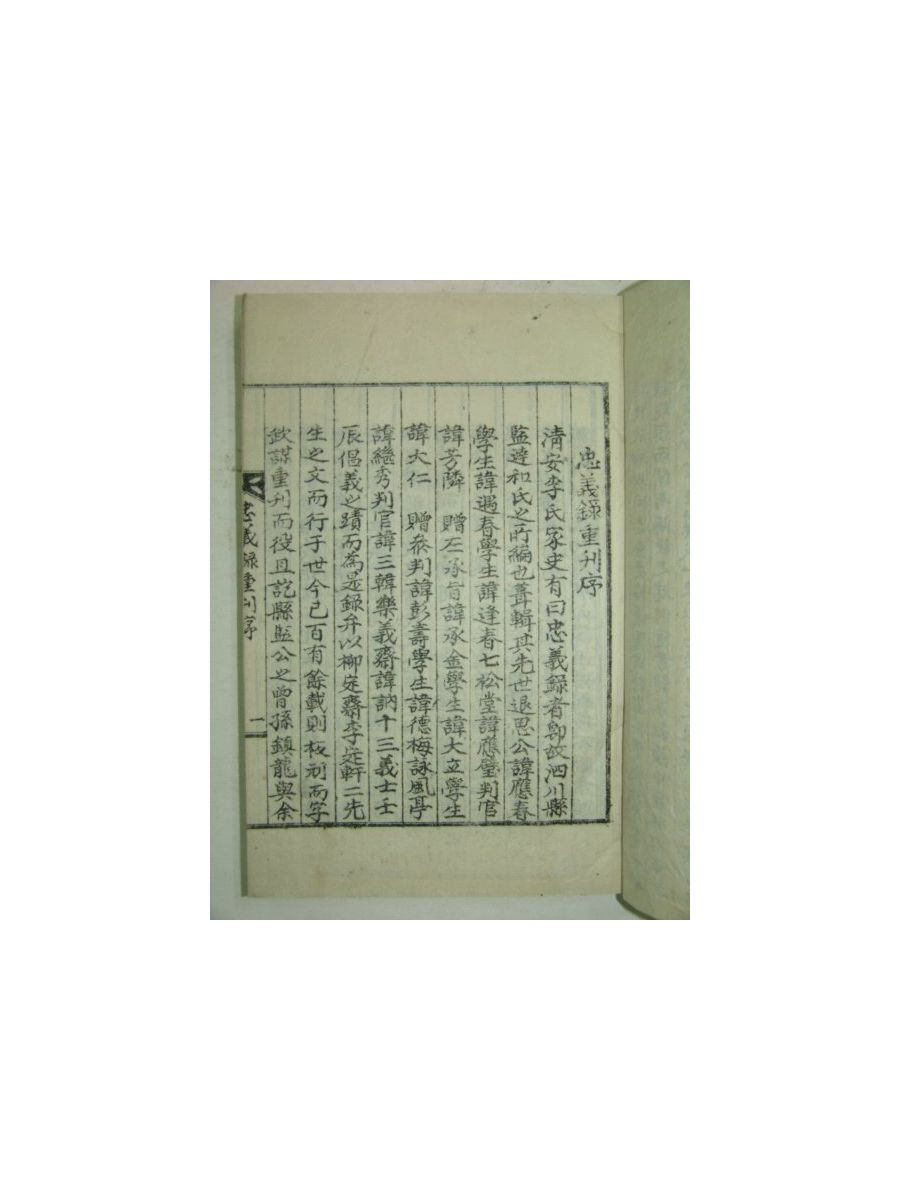 忠義錄重刊序
清安李氏家史有曰忠義錄者卽故泗川縣
監遊和氏之所編也葺輯其先世退思公諱應春
學生諱遇春學生諱逢春七松堂諱應璧判官
諱芳隣 贈左承旨諱承金學生諱大立學生
諱大仁 贈叅判諱彭壽學生諱德梅詠風亭
諱繼秀判官諱三韓樂義齋諱訥十三義士壬
辰倡義之蹟而為是錄弁以柳定齋李定軒二先
生之文而行于世今已百有餘載則板刓而字
欽謀重刊而役且訖縣監公之曾孫鎮龍與余
忠義錄重刊序 一